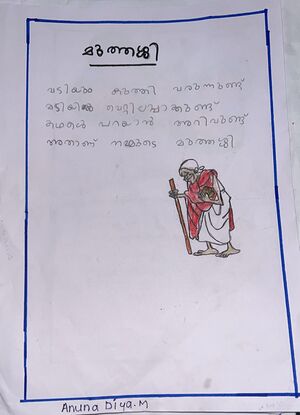 മുത്തശ്ശി
വടിയും കുത്തി വരുന്നുണ്ട്
മടിയിൽ വെറ്റിലപ്പാക്കുണ്ട്
കഥകൾ പറയാൻ അറിവുണ്ട്
അതാണ് നമ്മുടെ മുത്തശ്ശി
Anuna Diya.M